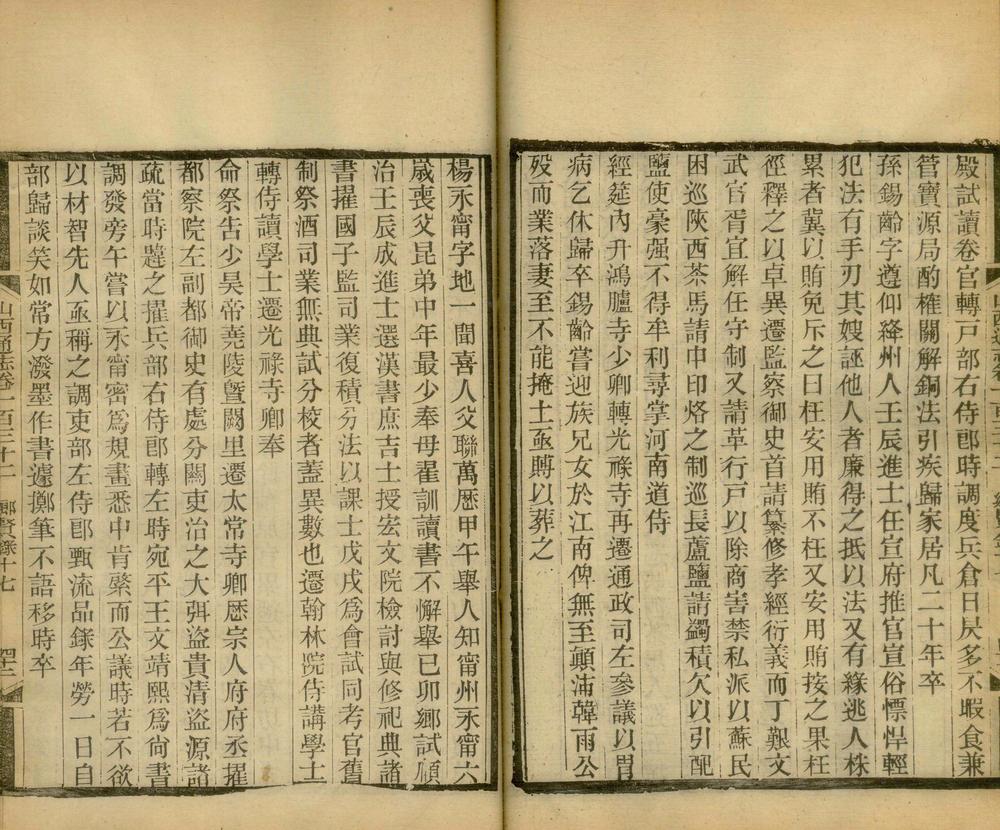 殿試讀卷官轉戸部右侍郎時調度兵倉日昃多不暇食兼
管寶源局酌榷關解銅法引疾歸家居凡二十年卒
孫錫齡字遵仰絳州人壬辰進士任宣府推官宣俗慓悍輕
犯法有手刃其嫂誣他人者廉得之抵以法又有緣逃人株
累者冀以賄免斥之曰枉安用賄不枉又安用賄按之果枉
徑釋之以卓異遷監察御史首請纂修孝經衍義而丁艱文
武官胥宜解任守制又請革行戸以除商害禁私派以蘇民
困巡陝西茶馬請中印烙之制巡長蘆鹽請蠲積欠以引配
鹽使豪强不得牟利尋掌河南道侍
經筵內升鴻臚寺少卿轉光祿寺再遷通政司左參議以胃
病乞休歸卒錫齡嘗迎族兄女於江南俾無至顛沛韓雨公
歿而業落妻至不能掩土亟賻以葬之
楊永甯字地一聞喜人父聯萬歷甲午舉人知甯州永甯六
歲喪父昆弟中年最少奉母翟訓讀書不懈舉己卯鄉試順
治壬辰成進士選漢書庶吉士授宏文院檢討與修祀典諸
書擢國子監司業復積分法以課士戊戌爲會試同考官舊
制祭酒司業無典試分校者蓋異數也遷翰林院侍講學士
轉侍讀學士遷光祿寺卿奉
命祭告少昊帝堯陵曁闕里遷太常寺卿歷宗人府府丞擢
都察院左副都御史有處分關吏治之大弭盜貴清盜源諸
疏當時韙之擢兵部右侍郎轉左時宛平王文靖熙爲尙書
調發旁午嘗以永甯密爲規畫悉中肯綮而公議時若不欲
以材智先人亟稱之調吏部左侍郎甄流品錄年勞一日自
部歸談笑如常方潑墨作書遽擲筆不語移時卒
山西通志卷一百三十二 鄉賢錄十七